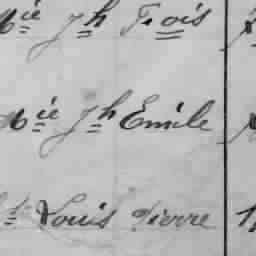 Mie Jh Frois
Mie Jh Emile
Louis Pierre